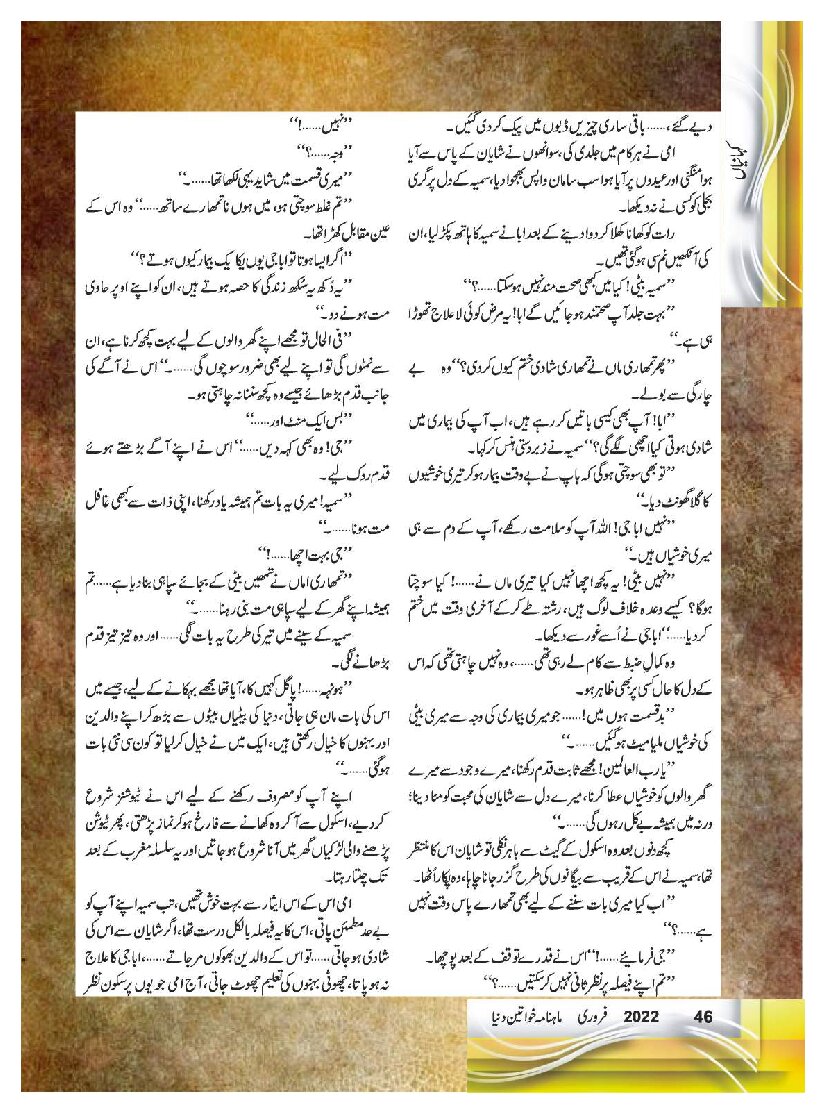 کہانیاں
دیے گئے،...... باقی ساری چیزیں ڈبوں میں پیک کر دی گئیں۔
امی نے ہر کام میں جلدی کی، سو انھوں نے شایان کے پاس سے آیا
ہوا منگنی اور عیدوں پر آیا ہوا سب سامان واپس بھجوا دیا، سمیہ کے دل پر گری
بجلی کو کسی نے نہ دیکھا۔
رات کو کھانا کھلا کر دوا دینے کے بعد ابا نے سمیہ کا ہاتھ پکڑ لیا، ان
کی آنکھیں نم سی ہو گئی تھیں۔
’’سمیہ بیٹی! کیا میں کبھی صحت مند نہیں ہو سکتا......؟‘‘
’’بہت جلد آپ صحتمند ہو جائیں گے ابا! یہ مرض کوئی لا علاج تھوڑا
ہی ہے۔‘‘
’’پھر تمھاری ماں نے تمھاری شادی ختم کیوں کر دی؟‘‘ وہ بے
چارگی سے بولے۔
’’ابا! آپ بھی کیسی باتیں کر رہے ہیں، اب آپ کی بیماری میں
شادی ہوتی کیا اچھی لگے گی؟‘‘ سمیہ نے زبردستی ہنس کر کہا۔
’’تو بھی سوچتی ہو گی کہ باپ نے بے وقت بیمار ہو کر تیری خوشیوں
کا گلا گھونٹ دیا۔‘‘
’’نہیں ابا جی! اللہ آپ کو سلامت رکھے، آپ کے دم سے ہی
میری خوشیاں ہیں۔‘‘
’’نہیں بیٹی! یہ کچھ اچھا نہیں کیا تیری ماں نے......! کیا سوچتا
ہوگا؟ کیسے وعدہ خلاف لوگ ہیں، رشتہ طے کر کے آخری وقت میں ختم
کر دیا.....‘‘ ابا جی نے اُسے غور سے دیکھا۔
وہ کمالِ ضبط سے کام لے رہی تھی......، وہ نہیں چاہتی تھی کہ اس
کے دل کا حال کسی پر بھی ظاہر ہو۔
’’بدقسمت ہوں میں!...... جو میری بیماری کی وجہ سے میری بیٹی
کی خوشیاں ملیا میٹ ہو گئیں......۔‘‘
’’یا رب العالمین! مجھے ثابت قدم رکھنا، میرے وجود سے میرے
گھر والوں کو خوشیاں عطا کرنا، میرے دل سے شایان کی محبت کو مٹا دینا؛
ورنہ میں ہمیشہ بے کل رہوں گی......۔‘‘
کچھ دنوں بعد وہ اسکول کے گیٹ سے باہر نکلی تو شایان اس کا منتظر
تھا، سمیہ نے اس کے قریب سے بیگانوں کی طرح گزر جانا چاہا، وہ پکار اُٹھا۔
’’اب کیا میری بات سننے کے لیے بھی تمھارے پاس وقت نہیں
ہے......؟‘‘
’’جی فرمائیے......!‘‘ اس نے قدرے توقف کے بعد پوچھا۔
’’تم اپنے فیصلہ پر نظر ثانی نہیں کر سکتیں......؟‘‘
’’نہیں......!‘‘
’’وجہ......؟‘‘
’’میری قسمت میں شاید یہی لکھا تھا......۔‘‘
’’تم غلط سوچتی ہو، میں ہوں نا تمھارے ساتھ......‘‘ وہ اس کے
عین مقابل کھڑا تھا۔
’’اگر ایسا ہوتا تو ابا جی یوں یکا یک بیمار کیوں ہوتے؟‘‘
’’یہ دُکھ یہ سُکھ زندگی کا حصہ ہوتے ہیں، ان کو اپنے اوپر حاوی
مت ہونے دو۔‘‘
’’فی الحال تو مجھے اپنے گھر والوں کے لیے بہت کچھ کرنا ہے، ان
سے نمٹوں گی تو اپنے لیے بھی ضرور سوچوں گی......۔‘‘ اس نے آگے کی
جانب قدم بڑھائے جیسے وہ کچھ سننا نہ چاہتی ہو۔
’’بس ایک منٹ اور......‘‘
’’جی! وہ بھی کہہ دیں......‘‘ اس نے اپنے آگے بڑھتے ہوئے
قدم روک لیے۔
’’سمیہ! میری یہ بات تم ہمیشہ یاد رکھنا، اپنی ذات سے کبھی غافل
مت ہونا......۔‘‘
’’جی بہت اچھا......!‘‘
’’تمھاری اماں نے تمھیں بیٹی کے بجائے سپاہی بنا دیا ہے...... تم
ہمیشہ اپنے گھر کے لیے سپاہی مت بنی رہنا......۔‘‘
سمیہ کے سینے میں تیر کی طرح یہ بات لگی...... اور وہ تیز تیز قدم
بڑھانے لگی۔
’’ہونہہ......! پاگل کہیں کا، آیا تھا مجھے بہکانے کے لیے، جیسے میں
اس کی بات مان ہی جاتی، دنیا کی بیٹیاں بیٹوں سے بڑھ کر اپنے والدین
اور بہنوں کا خیال رکھتی ہیں، ایک میں نے خیال کر لیا تو کون سی نئی بات
ہو گئی......۔‘‘
اپنے آپ کو مصروف رکھنے کے لیے اس نے ٹیوشنز شروع
کر دیے، اسکول سے آ کر وہ کھانے سے فارغ ہو کر نماز پڑھتی، پھر ٹیوشن
پڑھنے والی لڑکیاں گھر میں آنا شروع ہو جاتیں اور یہ سلسلہ مغرب کے بعد
تک چلتا رہتا۔
امی اس کے اس ایثار سے بہت خوش تھیں، تب سمیہ اپنے آپ کو
بے حد مطمئن پاتی، اس کا یہ فیصلہ بالکل درست تھا، اگر شایان سے اس کی
شادی ہو جاتی...... تو اس کے والدین بھوکوں مر جاتے......، ابا جی کا علاج
نہ ہو پاتا، چھوٹی بہنوں کی تعلیم چھوٹ جاتی، آج امی جو یوں پر سکون نظر
46 2022 فروری ماہنامہ خواتین دنیا